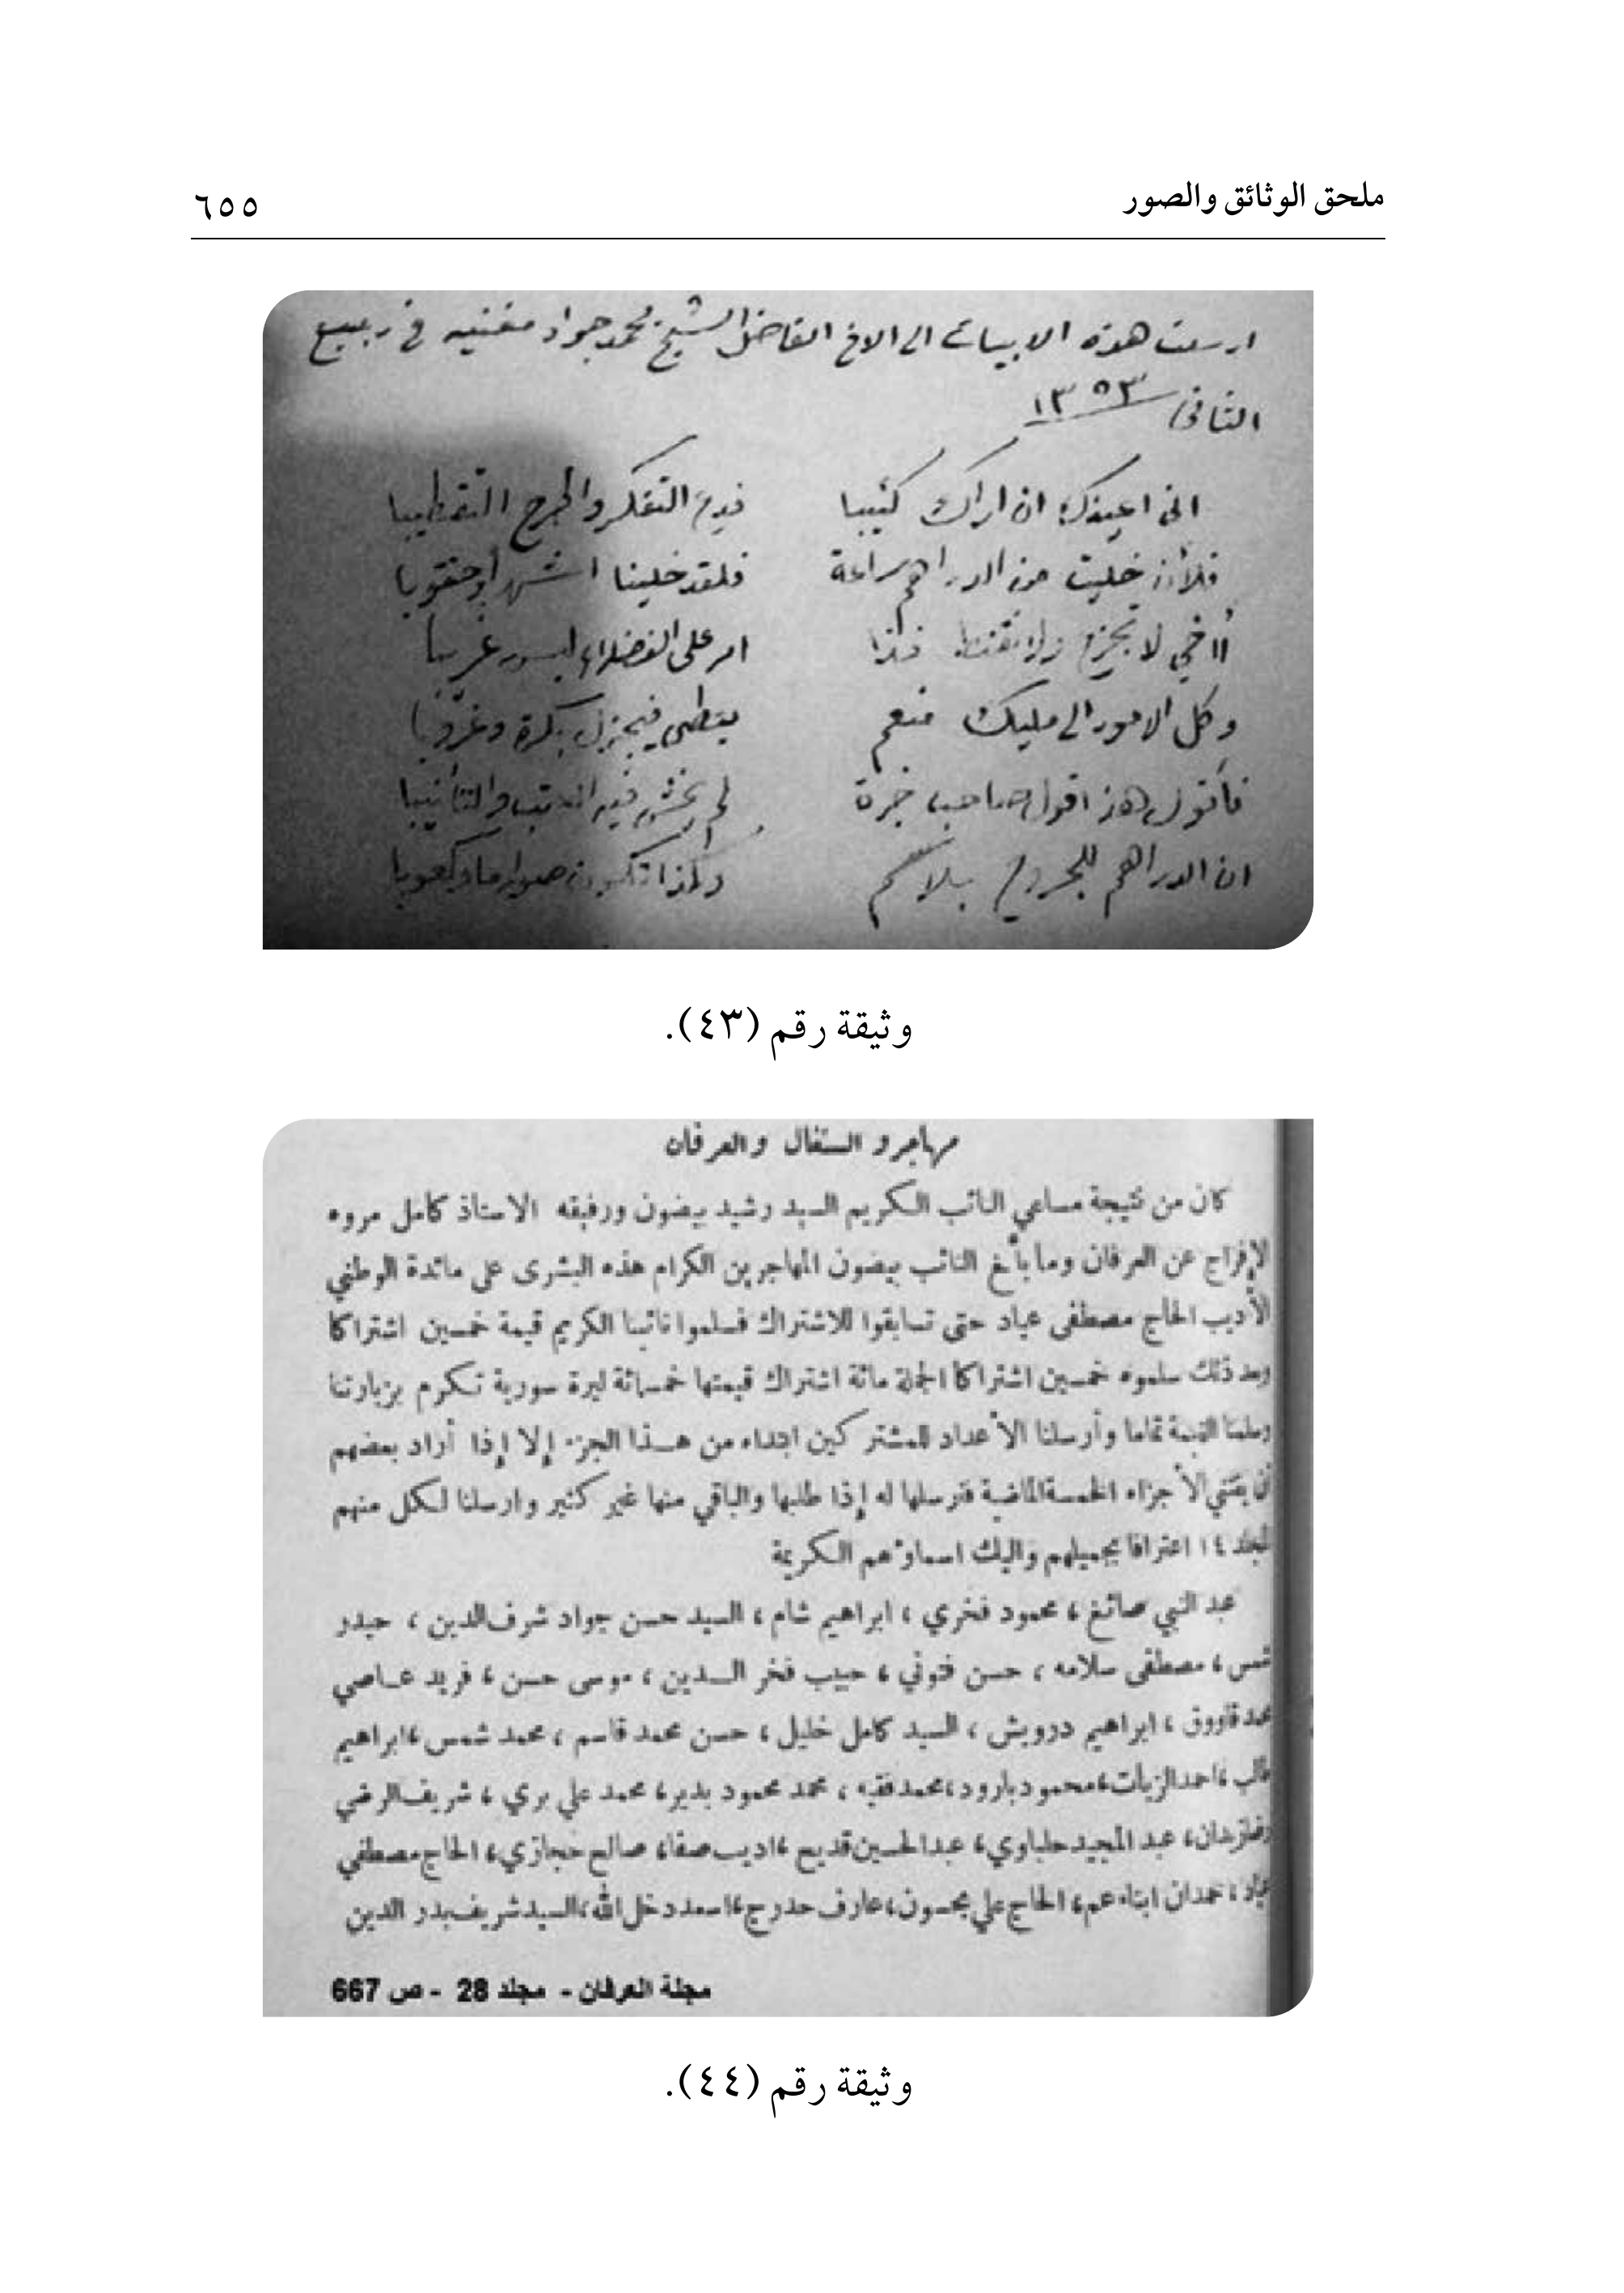 ملحق الوثائق والصور
٦٥٥
ارسلت هذه الابيات الى الاخ الفاضل الشيخ محمد جواد مغنيه في ربيع
الثاني ١٣٥٣
اني اعيذك ان اراك كئيبا فدع التفكر واطرح التقطيبا
فلأن خليت من الدراهم ساعة فلقد خلينا اشهرا وحقوبا
أأخي لا تجزع ولا تقنط فذا امر على الفضلاء ليس غريبا
وكل الامور الى مليك منعم يعطي فيجزل بكرة وغروبا
فأقول هذا قول صاحب خبرة لم يخش فيه العتب والتأنيبا
ان الدراهم للجروح بلاسم ولذا تكون صوارما وكعوبا
وثيقة رقم (٤٣).
مهاجرو السنغال والعرفان
كان من نتيجة مساعي النائب الكريم السيد رشيد بيضون ورفيقه الاستاذ كامل مروه
الإفراج عن العرفان وما بلغ النائب بيضون المهاجرين الكرام هذه البشرى على مائدة الوطني
الأديب الحاج مصطفى عياد حتى تسابقوا للاشتراك فسلموا نائبنا الكريم قيمة خمسين اشتراكا
وبعد ذلك سلموه خمسين اشتراكا الجملة مائة اشتراك قيمتها خمسمائة ليرة سورية تكرم بزيارتنا
وسلمنا القيمة تماما وأرسلنا الأعداد للمشتركين ابتداء من هذا الجزء إلا إذا أراد بعضهم
أن يقتني الأجزاء الخمسة الماضية فنرسلها له إذا طلبها والباقي منها غير كثير وارسلنا لكل منهم
المجلد ١٤ اعترافا بجميلهم واليك اسماؤهم الكريمة
عبد النبي صائغ، محمود فخري، ابراهيم شام، السيد حسن جواد شرف الدين، حيدر
شمس، مصطفى سلامه، حسن فتوني، حبيب فخر الدين، موسى حسن، فريد عاصي
محمد قاووق، ابراهيم درويش، السيد كامل خليل، حسن محمد قاسم، محمد شمس، ابراهيم
طالب، احمد الزيات، محمود بارود، محمد فقيه، محمد محمود بدير، محمد علي بري، شريف الرضي
عبد المجيد حلباوي، عبد الحسين قديح، اديب صفا، صالح حجازي، الحاج مصطفى
عياد، حمدان ابناء عم، الحاج علي بحسون، عارف حدرج، اسعد دخل الله، السيد شريف بدر الدين
مجلة العرفان - مجلد 28 - ص 667
وثيقة رقم (٤٤).